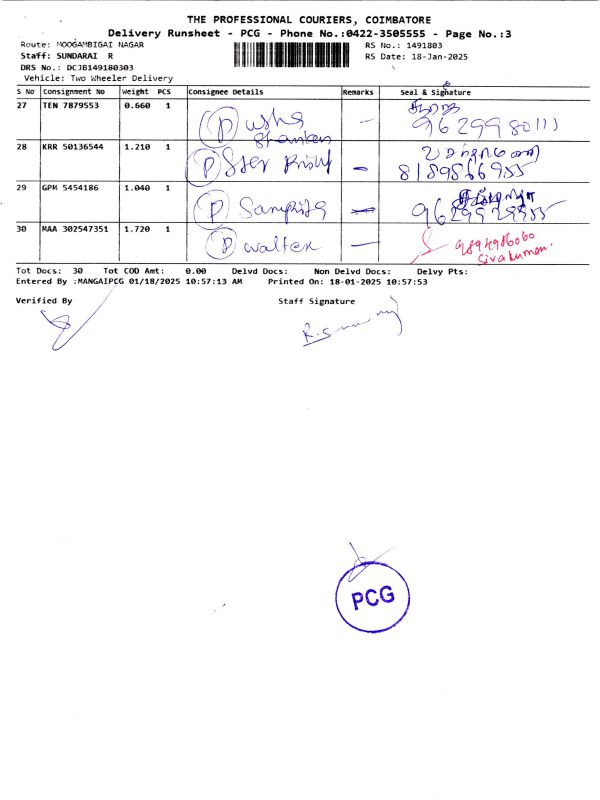 THE PROFESSIONAL COURIERS, COIMBATORE
Delivery Runsheet - PCG - Phone No.:0422-3505555 - Page No.:3
Route: MOOGAMBIGAI NAGAR RS No.: 1491803
Staff: SUNDARAI R RS Date: 18-Jan-2025
DRS No.: DCJB149180303
Vehicle: Two Wheeler Delivery
S No Consignment No Weight PCS Consignee Details Remarks Seal & Signature
27 TEN 7879553 0.660 1 P usha — 9629980111
28 KRR 50136544 1.210 1 P —
29 GPM 5454186 1.040 1 P —
30 MAA 302547351 1.720 1 P walter — Sivakumar.
Tot Docs: 30 Tot COD Amt: 0.00 Delvd Docs: Non Delvd Docs: Delvy Pts:
Entered By :MANGAIPCG 01/18/2025 10:57:13 AM Printed On: 18-01-2025 10:57:53
Verified By Staff Signature
PCG